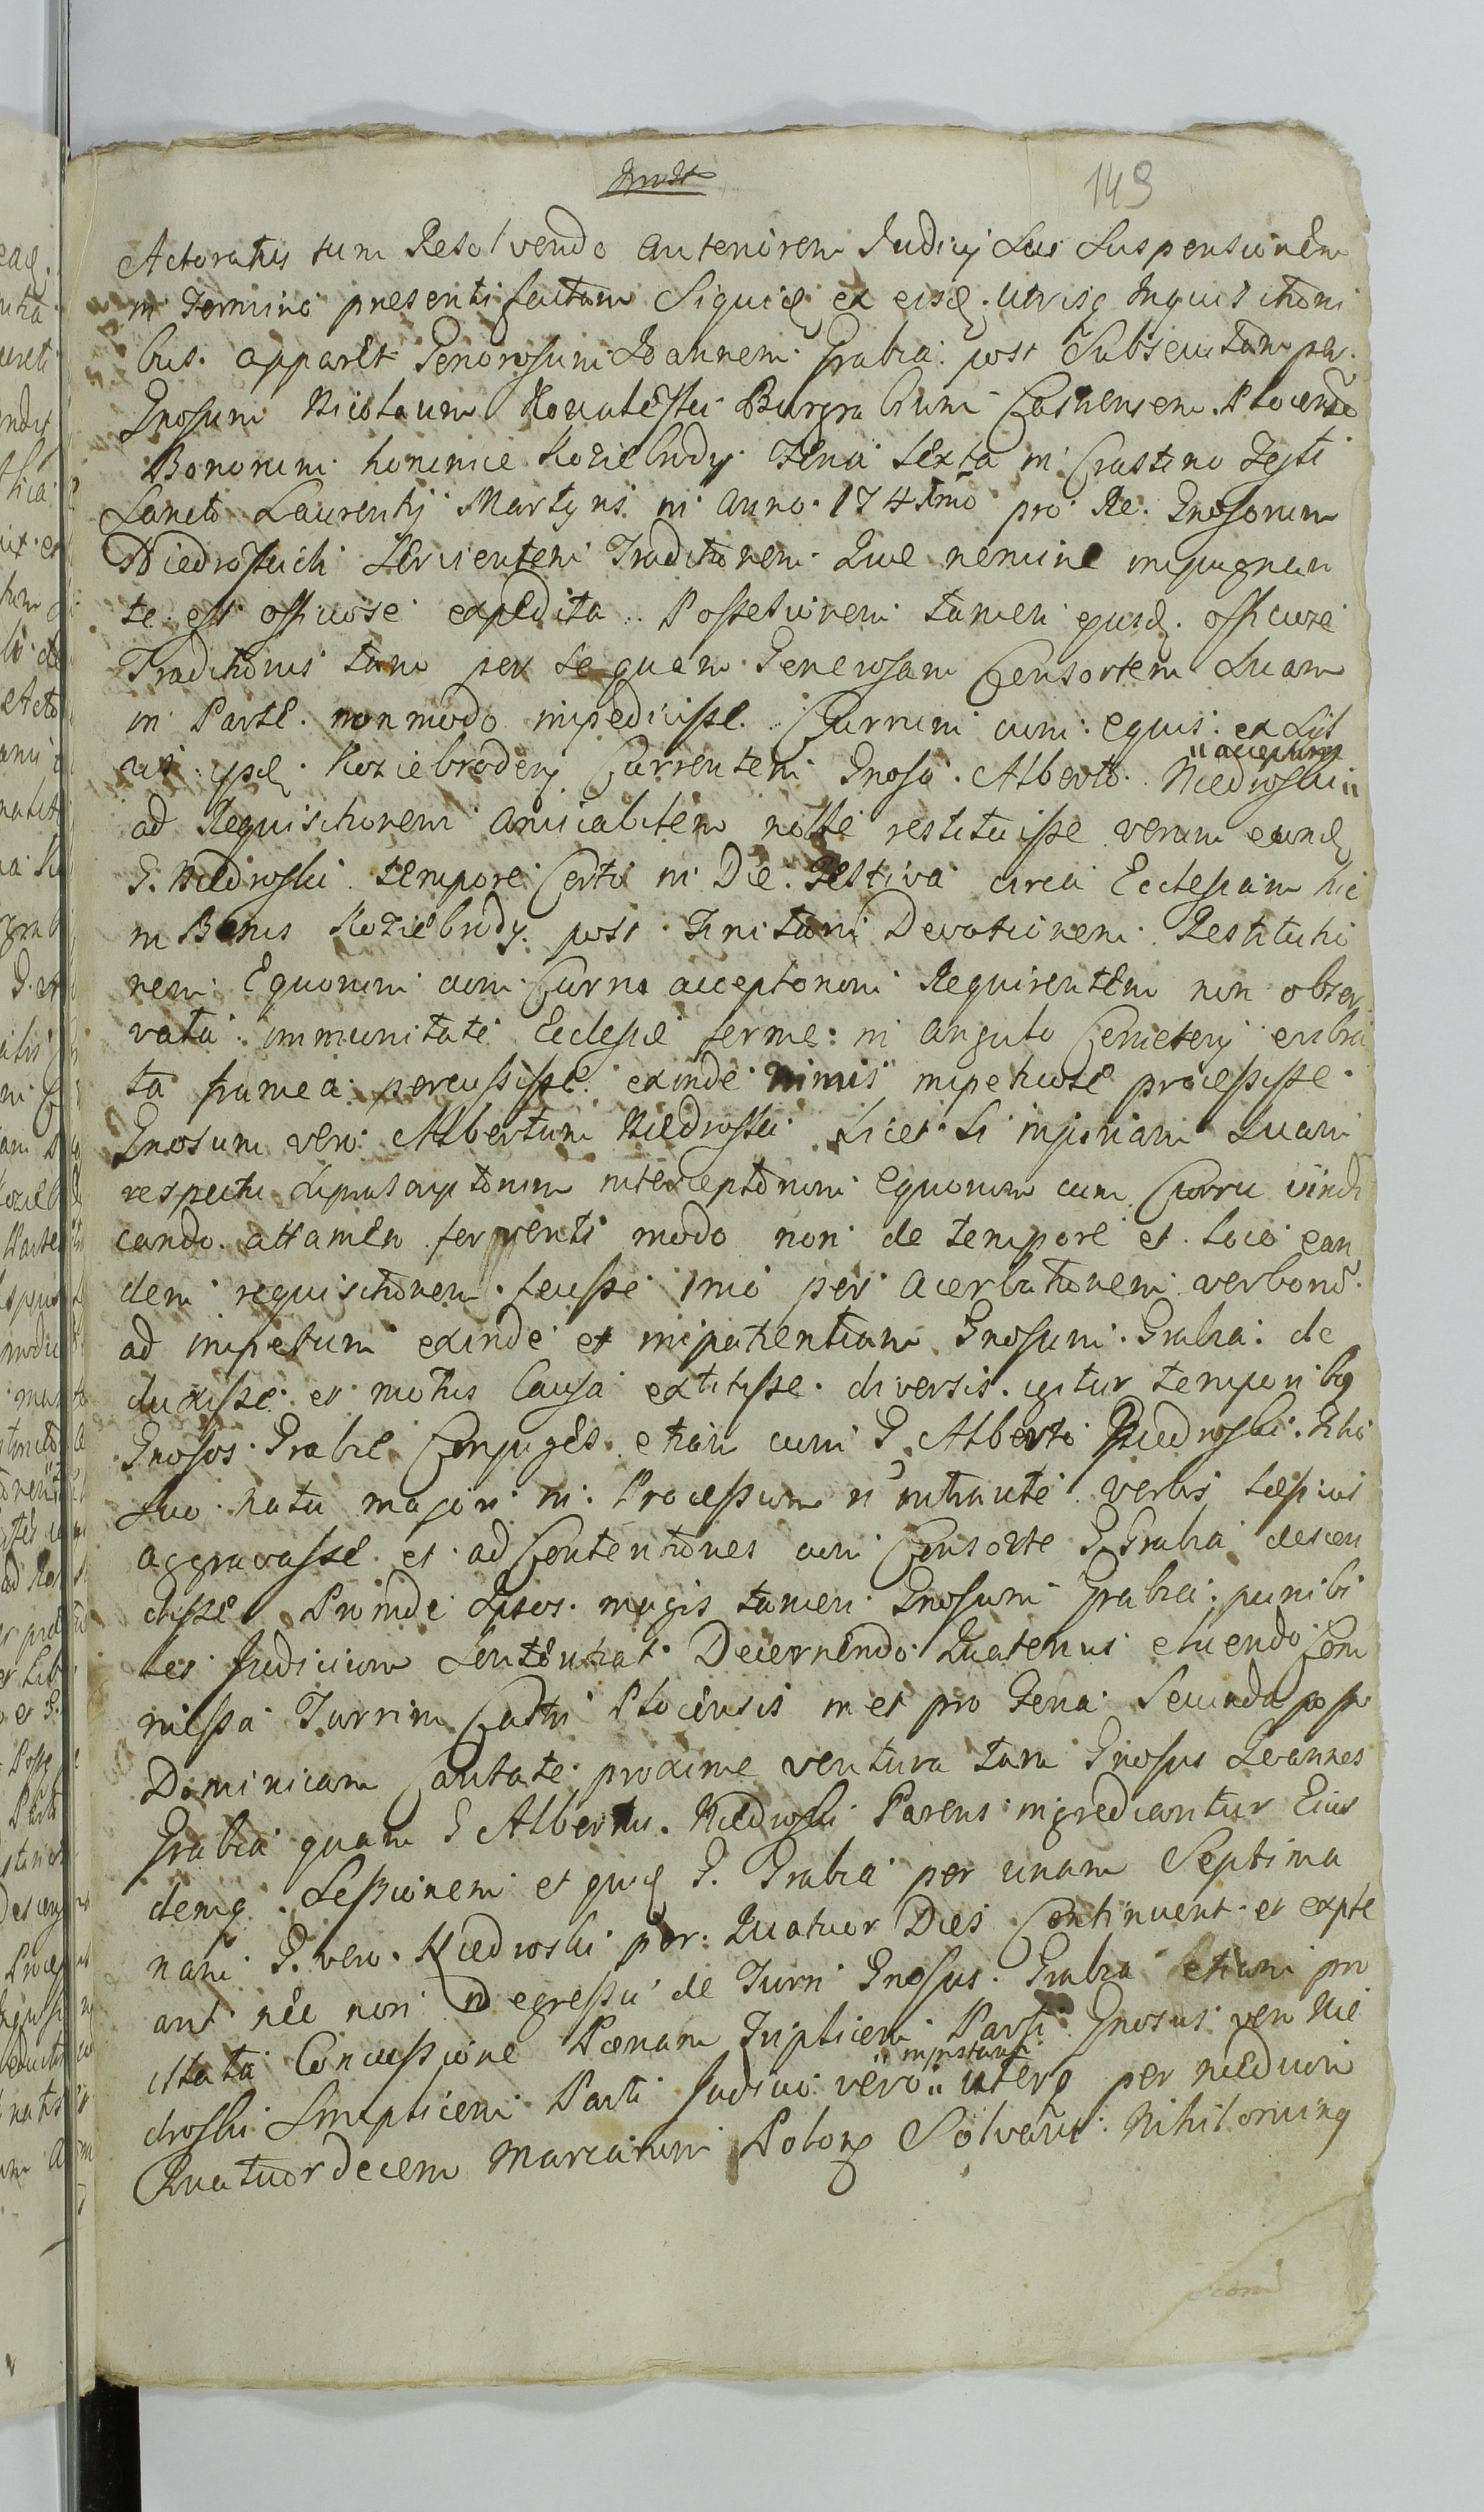 149
Actoratus sum Resolvendo anteriorem Judicij Sui Suspensionem
in Termino presenti factam Siquid ex eisd. utrisq Inquisitioni
bus. apparet Generosum Joannem Grabia post Subsecutam per.
Gnosum Nicolaum Kowalewski Burgrabium Castrensem Plocensē
Bonorum nomine Koziebrody Feria Sexta in Crastino Festi
Sancti Laurentij Martyris in anno 174 pro Re Gnosorum
Niedroskich Servientem Traditionem Quae nemine impugnan
te est officiose expedita Possesionem tamen ejusd. officiose
Traditionis tam per se quam Generosam Consortem Suam
in Parte. non modo impedivisse. Currum cum equis ex
ipsd. Koziebrody Currentem Gnoso. Alberto Niedroski
"acceptum
ad Requisitionem amicabilem nolle restituisse verum eund
G. Niedroski tempore Certo in Die Festiva circa Ecclesiam hic
in Bonis Koziebrody. post Finitam Devotionem Restitutio
nem Equorum cum Curru acceptorum Requirentem non obser
vata immunitate Ecclesiae ferme in angulo Cemetery
ta framea percussisse. exinde nimis impetuose processisse
Gnosum vero Albertum Niedroski Licet Si injuriam Suam
respectu suprascriptorum interceptorum equorum cum Curru vindi
cando. attamen ferventi modo non de tempore et loco ean
dem requisitionem fecisse imo per acerbationem verborū
ad impetum exinde et impatientiam Gnosum Grabia de
duxisse et motus Causa extitisse. diversis igitur temporibq
Gnosos Grabie Conjuges etiam cum G. Alberti Niedroski Filio
Suo natu majori in Processum intrante verbis saepius
aggravasse et ad Contentiones cum Consorte G. Grabia descen
disse Proinde Ipsos magis tamen Gnosum Grabia punibi
les Judicium Sententiat Decernendo Quatenus eluendo Com
missa Turrim Castri Plocensis in et pro Feria Secunda post
Dominicam Cantate proxime ventura tam Gnosus Joannes
Grabia quam G Albertus Niedroski Parens ingrediantur Eius
demq Sessionem et quid G. Grabia per unam Septima
nam G. vero Niedroski per Quatuor Dies Continuent et exple
ant nec non in egressu de Turri Gnosus Grabia
Concussione Poenam Triplicem Parti Gnosus vero Nie
droski Simplicem Parti Judicio vero " uterq per medium
Quatuordecem Marcarum Polon Solvant Nihilominq